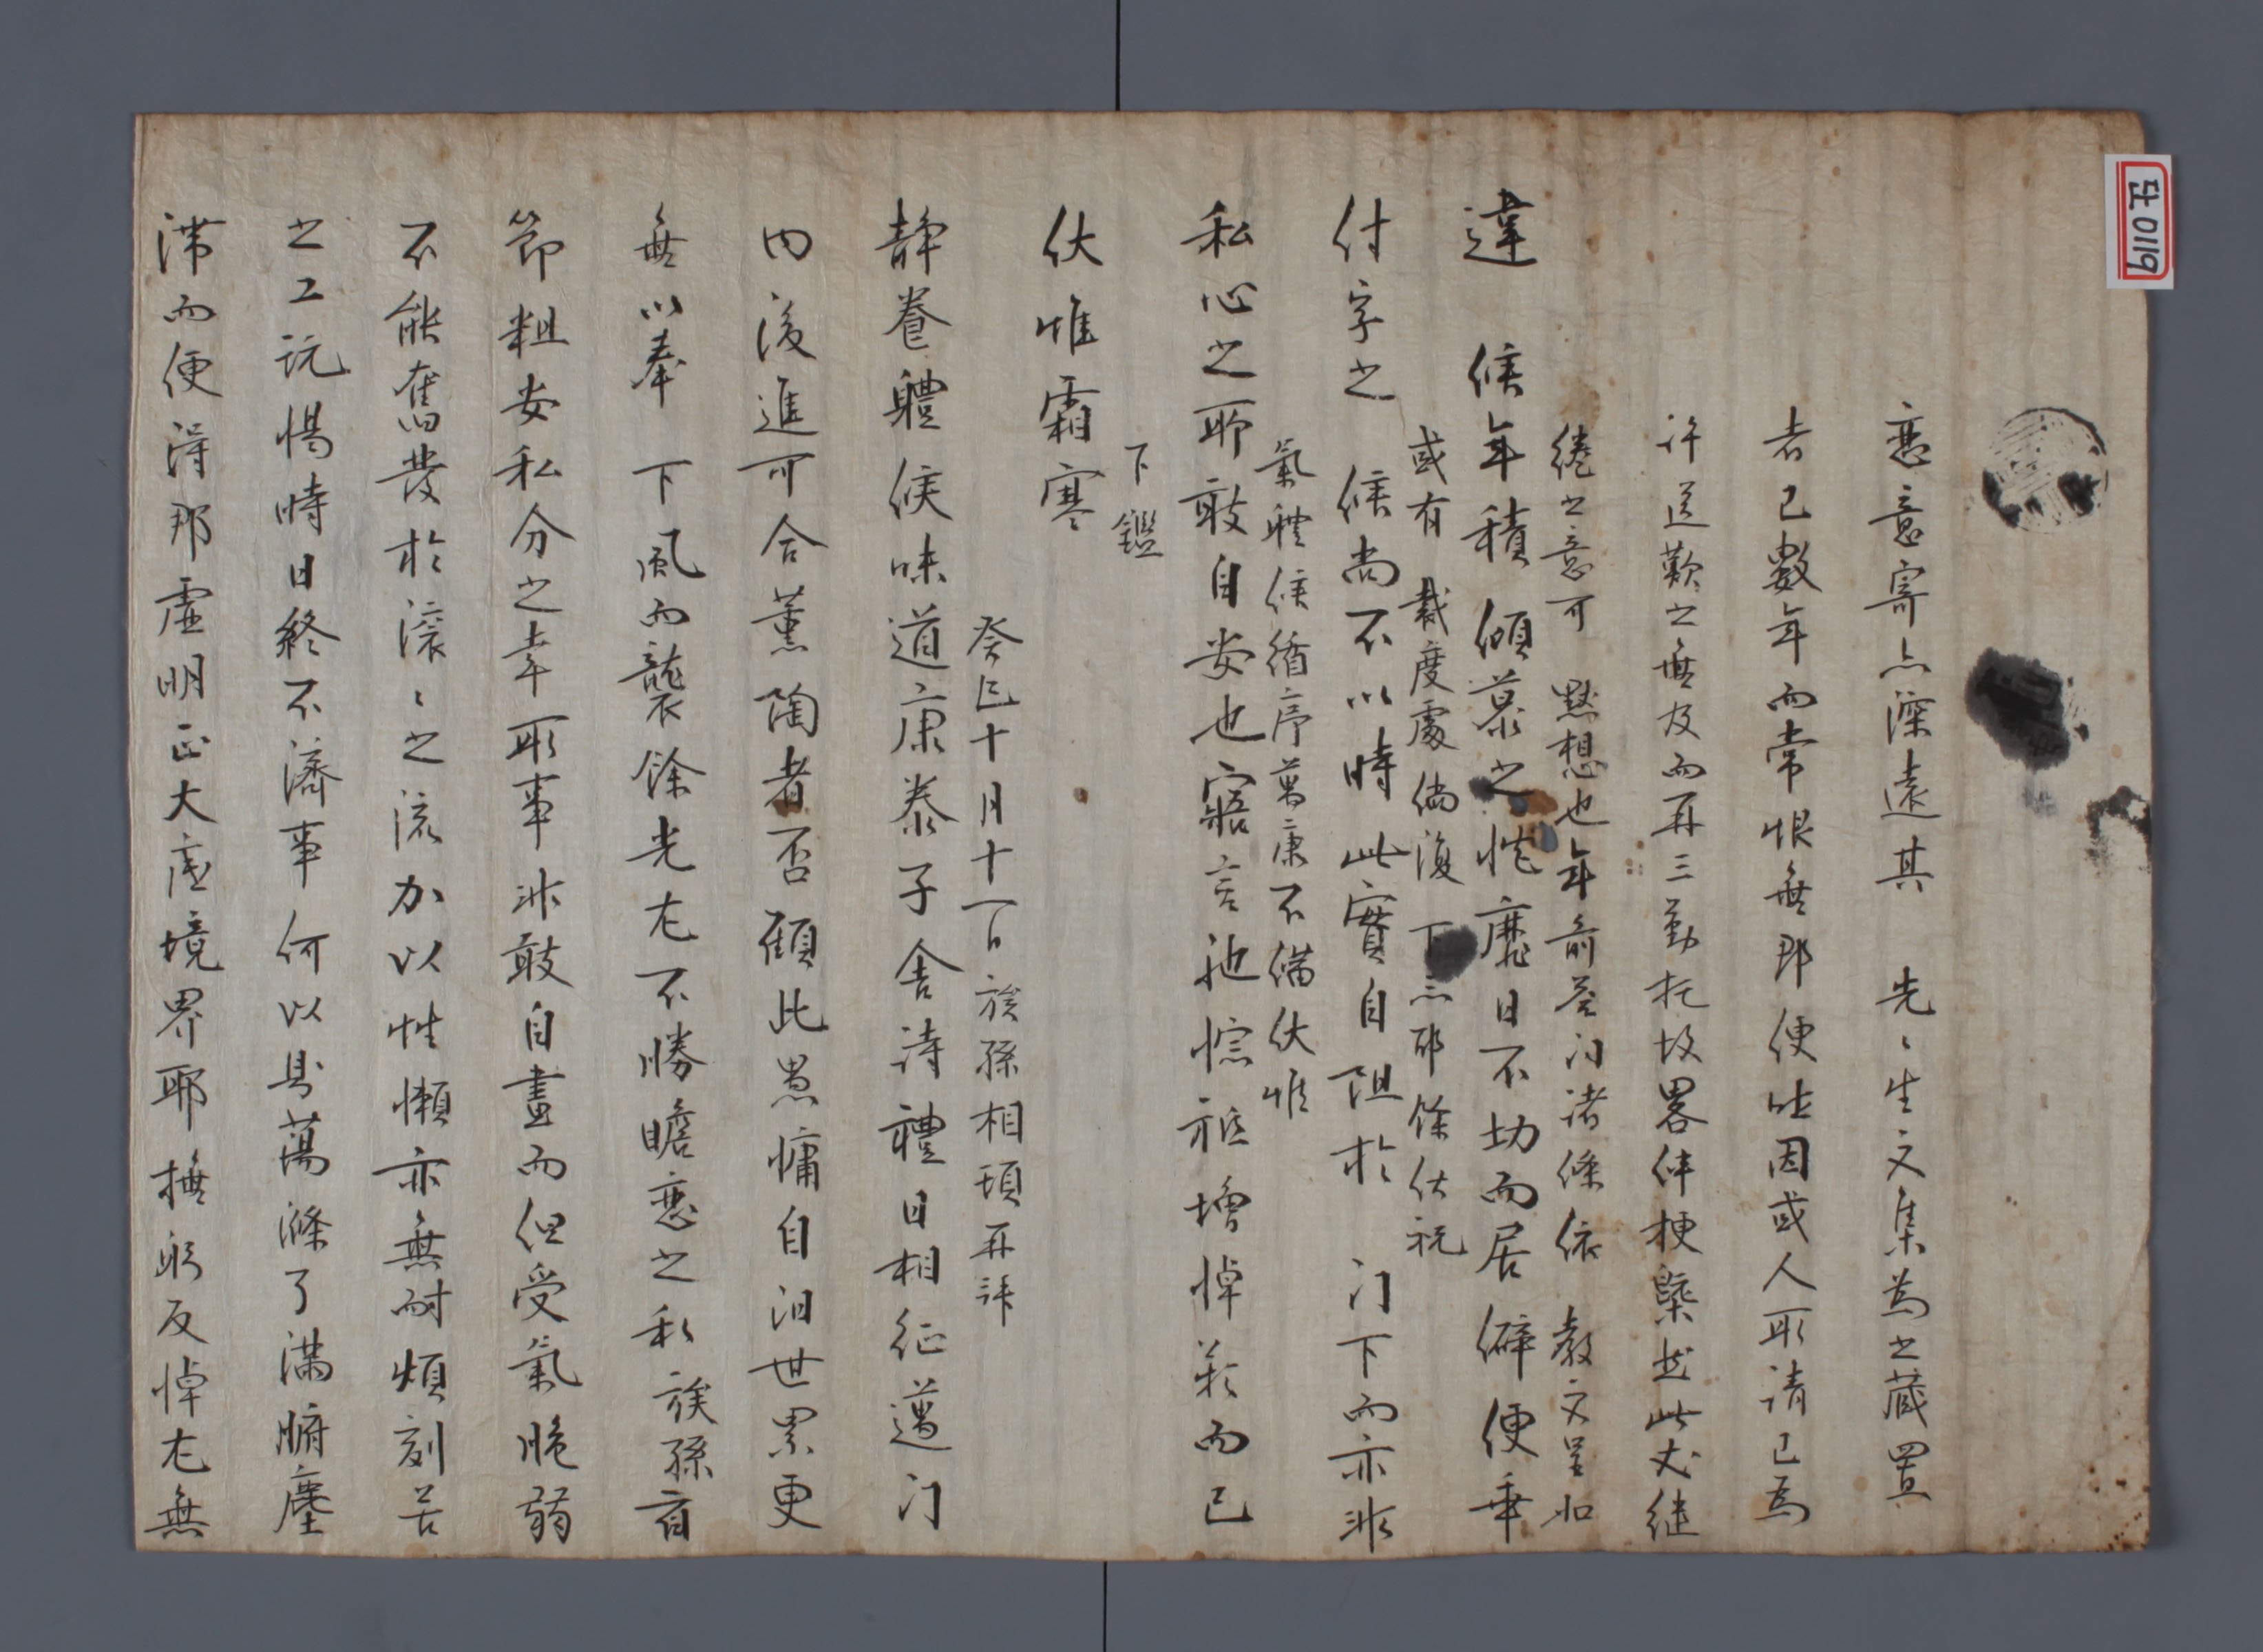 違 候年積傾慕之忱靡日不切而居僻便乖
付字之 候尚不以時此實自阻於 门下而亦非
私心之所敢自安也寤言馳悰祗增悼菀而已
伏惟霜寒
静養軆候味道康泰子舍詩禮日相征邁门
内後進可合薰陶者否顧此愚慵自汩世累更
無以奉 下風而襲餘光尤不勝瞻戀之私族孫省
節粗安私分之幸所事非敢自畫而但受氣脆弱
不能奮發於滾〻之流加以性懶亦無耐煩刻苦
之工玩愒時日終不濟事何以蕩滌了滿腑塵
滯而便得那虛明正大底境界耶撫躬反悼尤無
戀意寄亦深遠其 先〻生文集為之藏置
者已數年而常恨無那便因或人所請已為
許送歎之無及而再三勤托故畧伸梗槩於此丈继
绻之意可 默想也年前门诸條依 教文呈如
或有 裁度處倘復 下示耶餘伏祝
氣軆候循序萬康不備伏惟
下鑑
癸巳十月十一日族孫相頊再拜
0119